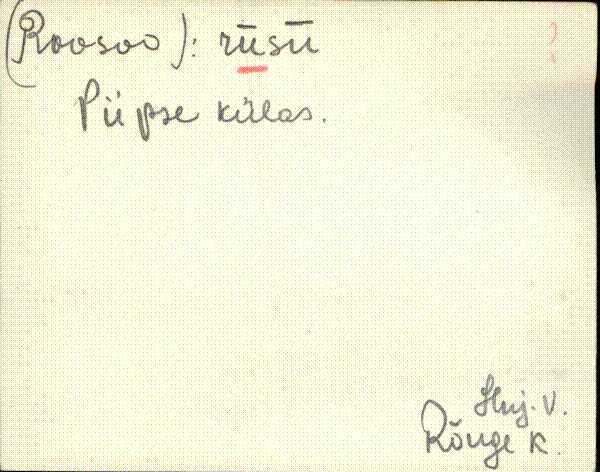 (Roosoo): rūsū
Püpse külas.
V.
Rõuge K.